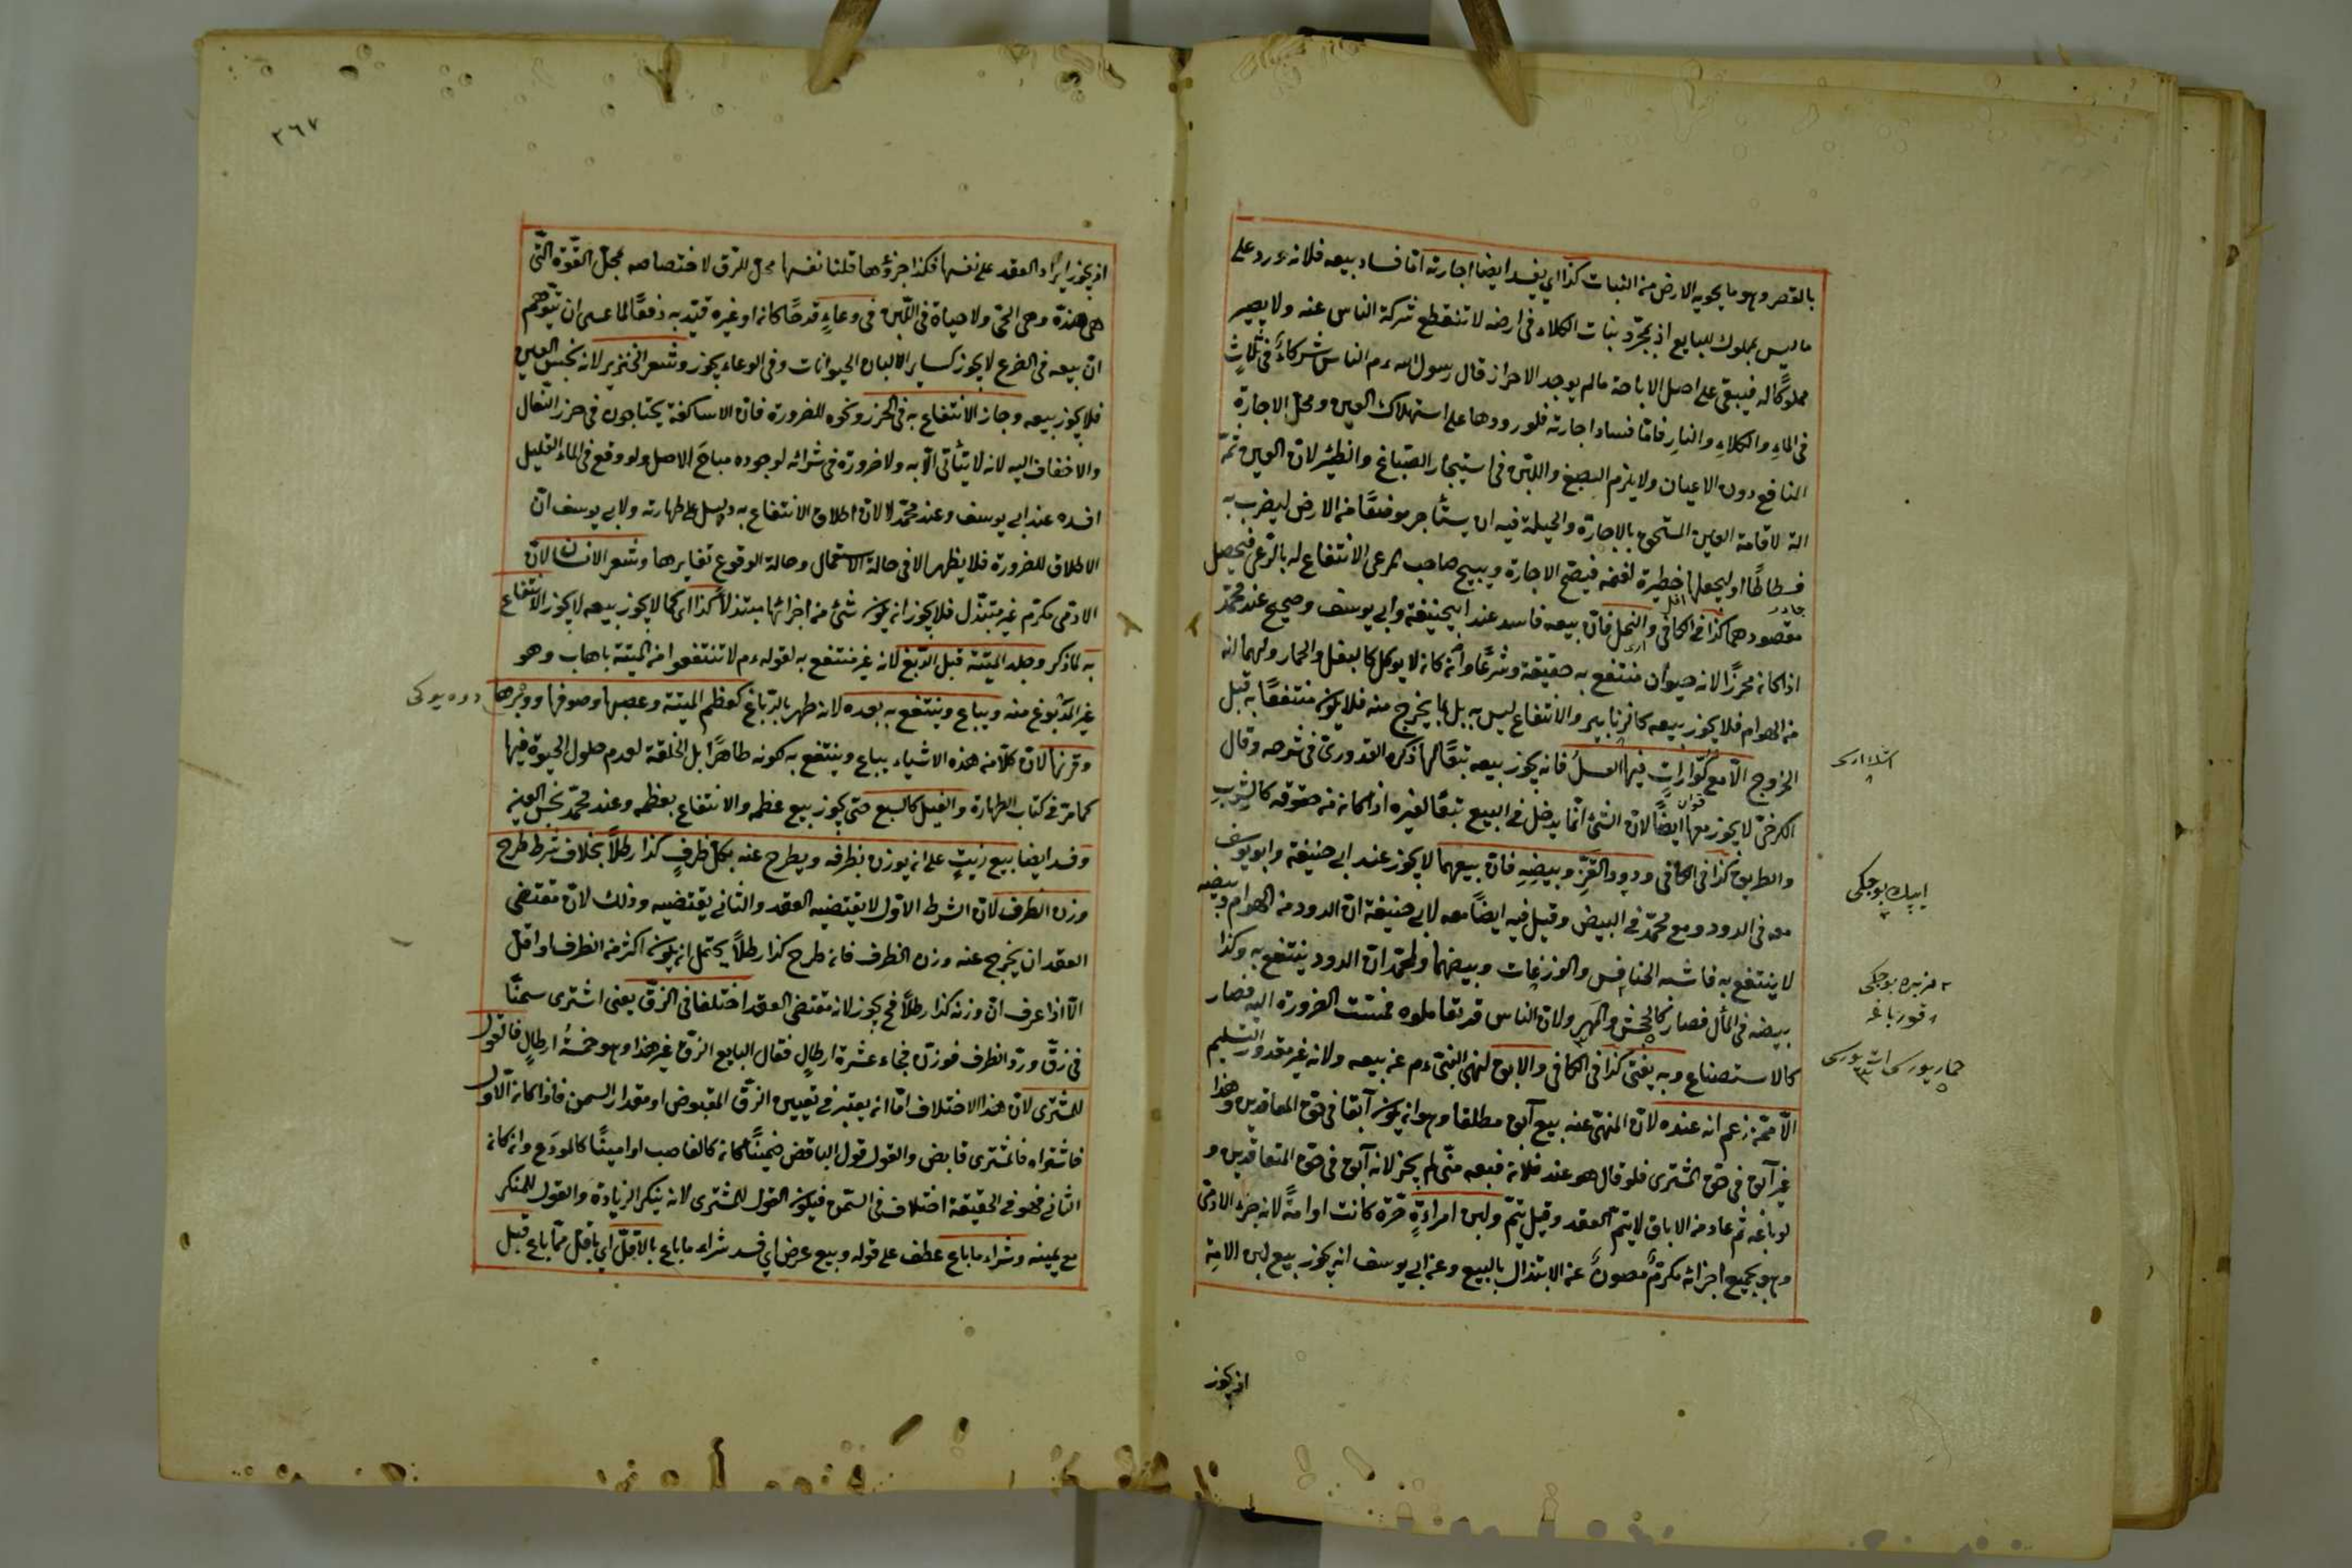 بالقصر وهو ما يحويه الارض من النبات كذا اي يفسد ايضا اجارته اما فساد بيعه فلانه ورد على
ما ليس بمملوك للبايع اذ بمجرد نبات الكلاء في ارضه لا تنقطع شركة الناس عنه ولا يصير
مملوكًا له فيبقى على اصل الاباحة ما لم يوجد الاحراز قال رسول الله ءم الناس شركاءُ في ثلاثٍ
في الماءِ والكلاءِ والنارِ فامّا فساد اجارته فلورودها على استهلاك العين ومحلّ الاجارة
المنافع دون الاعيان ولا يلزم الصبغ واللبن في استيجار الصبّاغ والظئر لانّ العين ثمّ
الة لاقامة العين المستحق بالاجارة والحيلة فيه ان يستأجر موضعًا من الارض ليضرب به
فسطاطًا او ليجعلها حظيرة لغنمه فيصحّ الاجارة ويبيح صاحب المرعى الانتفاع له بالرعي فيحصل
مقصودهما كذا في الكافي والنحل فانّ بيعه فاسد عند ابيحنيفة وابي يوسف وصحيح عند محمّد
اذا كانه محرزًا لانه حيوان منتفع به حقيقة وشرعًا وانه كانه لا يوكل كالبغل والحمار ولهما انه
من الهوام فلا يجوز بيعه كالزنابير والانتفاع ليس به بل بما يخرج منه فلا يكون منتفعًا به قبل
الخروج الّا مع كوّاراتٍ فيها العسلُ فانه يجوز بيعه تبعًا لها ذكره القدوريّ في شرحه وقال
الكرخيّ لا يجوز معها ايضًا لانّ الشئ انّما يدخل في البيع تبعًا لغيره اذا كانه من حقوقه كالشربِ
والطريق كذا في الكافي ودود القزّ وبيضِهِ فانّ بيعهما لا يجوز عند ابي حنيفة وابو يوسف
معه في الدود ومع محمّد في البيض وقيل فيه ايضًا معه لابي حنيفة انّ الدود من الهوام وبيضه
لا ينتفع به فاشبه الخنافس والوزغات وبيضهما ولمحمّد انّ الدود ينتفع به وكذا
بيضه في المآل فصار كالجحش والمهر ولانّ الناس قد تعاملوه فمسّت الضرورة اليه فصار
كالاستصناع وبه يفتى كذا في الكافي والابق لنهى النبيّ ءم عن بيعه ولانه غير مقدور التسليم
الّا ممّن زعم انه عنده لانّ المنهيّ عنه بيع آبق مطلقا وهو انه يكون آبقا في حق المعاقدين وهذا
غير آبق في حق المشترى فلو قال هو عند فلان فبعه منّي لم يجز لانه آبق في حق المتعاقدين و
لو باعه ثم عاد من الاباق لا يتمّ العقد وقيل يتمّ ولبن امراءةٍ حرّة كانت او امةً لانه جزء الادمىّ
وهو بجميع اجزائه مكرمٌ مصونٌ عن الابتذال بالبيع وعن ابي يوسف انه يجوز بيع لبن الامة
اذ يجوز
ايپك بوجكى
قورباغه
اذ يجوز ايراد العقد على نفسها فكذا جزؤها قلنا نفسها محلّ للرق لاختصاصه بمحلّ القوّة الّتي
هي ضدّه وهى الحىّ ولا حياة في اللّبن في وعاءٍ قدحًا كانه او غيره قيّد به دفعًا لما عسى ان يتوهم
انّ بيعه في الضرع لا يجوز كساير الالبان الحيوانات وفي الوعاء يجوز وشعر الخنزير لانه نجس العين
فلا يجوز بيعه وجاز الانتفاع به في الخرز ونحوه للضرورة فانّ الاساكفة يحتاجون في خرز النعال
والاخفاف اليه لانه لا يتأتى الّا به ولا ضرورة في شرائه لوجوده مباح الاصل ولو وقع في الماء القليل
افسده عند ابي يوسف وعند محمّد لا لانّ اطلاق الانتفاع به دليل على طهارته ولابي يوسف انّ
الاطلاق للضرورة فلا يظهر الا في حالة الاستعمال وحالة الوقوع تغايرها وشعر الانسان لانّ
الادمى مكرّم غير مبتذل فلا يجوز انه يكون شئ من اجزائها مبتذلاً كذا اى كما لا يجوز بيعه لا يجوز الانتفاع
به لما ذكر وجلد الميتة قبل الدبغ لانه غير منتفع به لقوله ءم لا تنتفعوا من الميتة باهاب وهو
غير المدبوغ منه ويباع وينتفع به بعده لانه طهر بالدباغ كعظم الميتة وعصبها وصوفها ووبرها
وقرنها لانّ كلّا من هذه الاشياء يباع وينتفع به لكونه طاهرًا بل الخلقة لعدم حلول الحيوة فيها
كما مرّ في كتاب الطهارة والفيل كالسبع حتى يجوز بيع عظمه والانتفاع بعظمه وعند محمّد نجس العين
وفسد ايضا بيع زيتٍ على انه يوزن بظرفه ويطرح عنه بكلّ ظرفٍ كذا رطلاً بخلاف شرط طرح
وزن الظرف لانّ الشرط الاوّل لا يقتضيه العقد والثاني يقتضيه وذلك لانّ مقتضى
العقد ان يخرج عنه وزن الظرف فانه طرح كذا رطلاً يحتمل انه يكون اكثر من الظرف او اقلّ
الّا اذا عرف انّ وزنه كذا رطلاً فح يجوز لانه مقتضى العقد اختلفا في الزقّ يعنى اشترى سمنًا
في زقّ وردّ الظرف فوزن فجاء عشرة ارطالٍ فقال البايع الزقّ غير هذا وهو خمسة ارطالٍ فالقول
للمشترى لانّ هذا الاختلاف امّا انه يعتبر في تعيين الزقّ المقبوض او مقدار السمن فاذا كانه الاوّل
فاشتراه فالمشترى قابض والقول قول القابض ضمينًا كانه كالغاصب او امينًا كالمودَع وانه كانه
الثاني فهو في الحقيقة اختلاف في الثمن فيكون القول للمشترى لانه ينكر الزيادة والقول للمنكر
مع يمينه وشراء ما باع عطف على قوله وبيع عرض اي فسد شراء ما باع بالاقلّ اي باقلّ ممّا باع قبل
٣٦٧